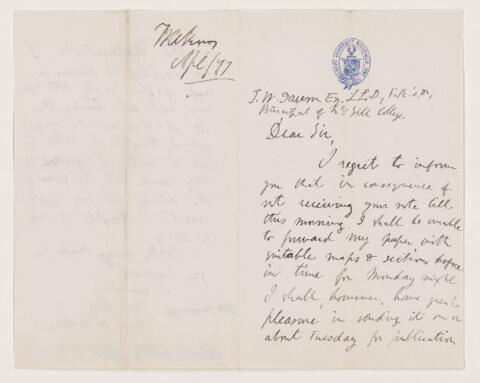 Apl/77
J. W. Dawson Esq. LL.D., F.R.S.,
Principal of McGill College.
Dear Sir,
I regret to inform
you that in consequence of
not receiving your note till
this morning I shall be unable
to forward my paper with
suitable maps & sections before
in time for Monday night.
I shall, however, have great
pleasure in sending it on or
about Tuesday for publication